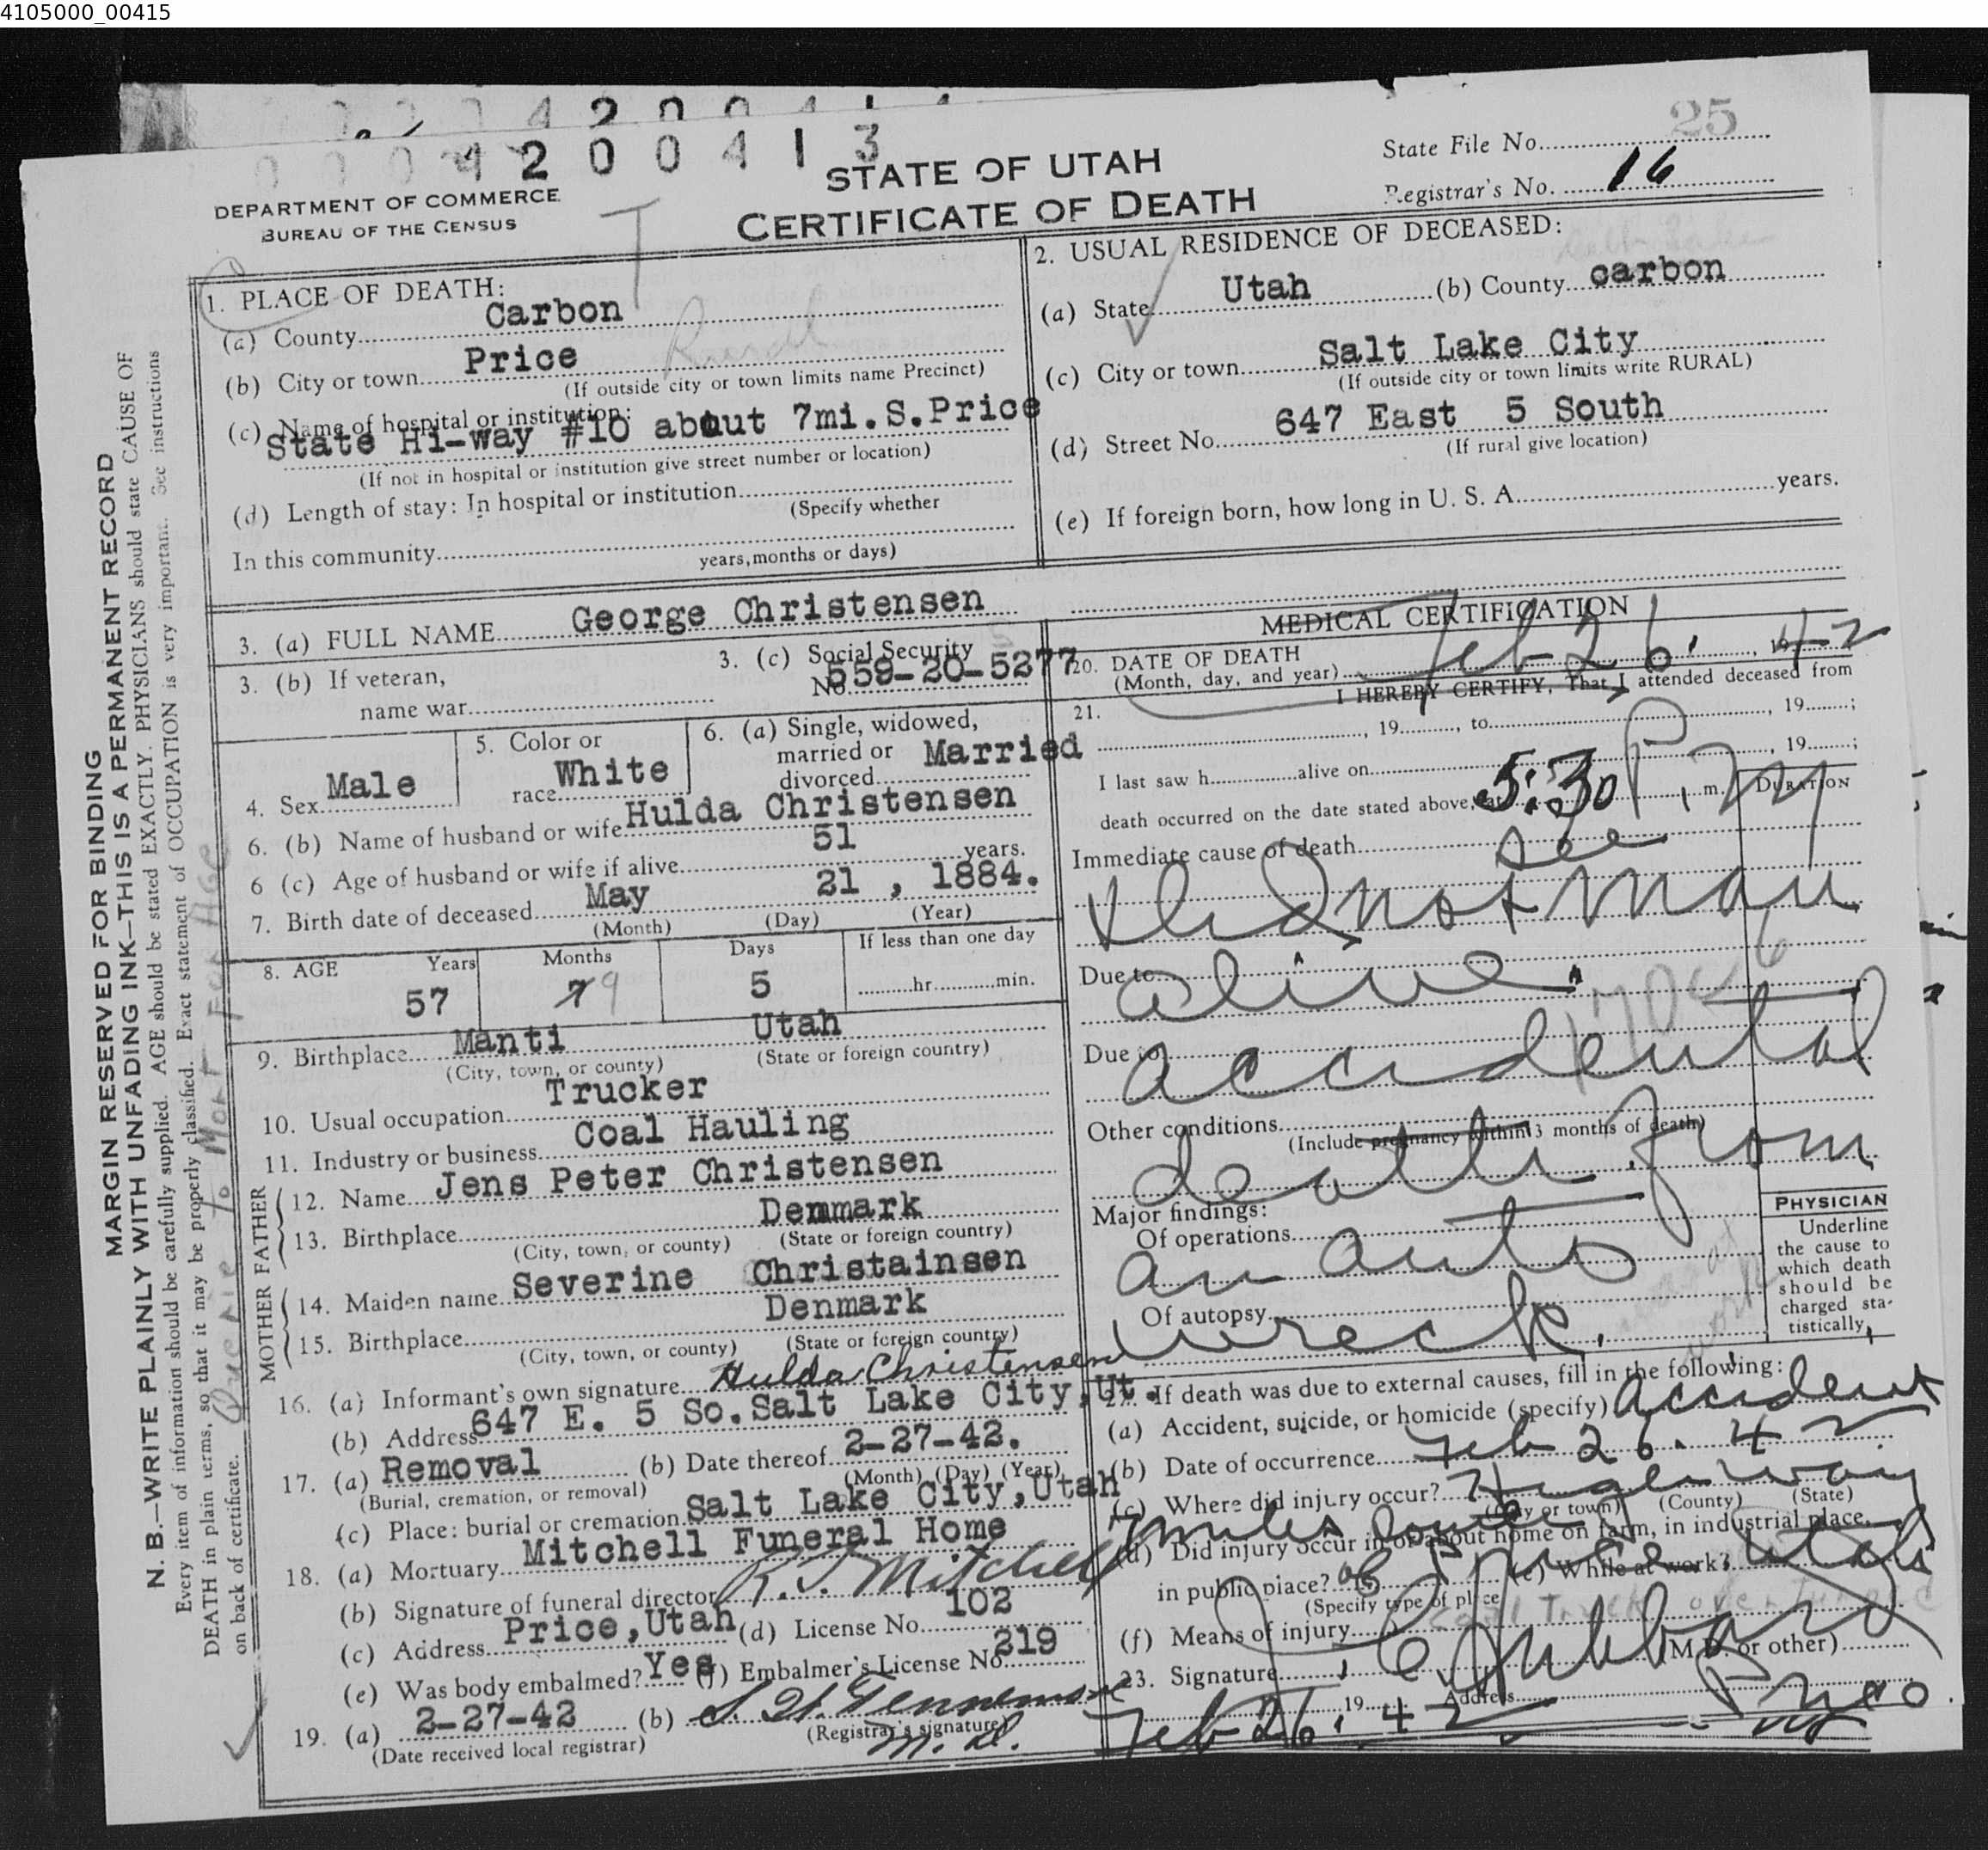 4105000_00415
0004200413
25
State File No.
Registrar's No. 16
DEPARTMENT OF COMMERCE
BUREAU OF THE CENSUS
T
STATE OF UTAH
CERTIFICATE OF DEATH
1. PLACE OF DEATH:
(a) County Carbon
(b) City or town Price Rural
(If outside city or town limits name Precinct)
(c) Name of hospital or institution:
State Hi-way #10 about 7mi.S.Price
(If not in hospital or institution give street number or location)
(d) Length of stay: In hospital or institution
(Specify whether
In this community years, months or days)
2. USUAL RESIDENCE OF DECEASED:
(a) State Utah (b) County carbon
(c) City or town Salt Lake City
(If outside city or town limits write RURAL)
(d) Street No. 647 East 5 South
(If rural give location)
(e) If foreign born, how long in U. S. A. years.
3. (a) FULL NAME George Christensen
3. (b) If veteran,
name war
3. (c) Social Security
No. 559-20-5277
4. Sex Male
5. Color or
race White
6. (a) Single, widowed,
married or
divorced Married
6. (b) Name of husband or wife Hulda Christensen
6 (c) Age of husband or wife if alive 51 years.
7. Birth date of deceased May 21, 1884.
(Month) (Day) (Year)
8. AGE Years Months Days If less than one day
57 7 9 5 hr. min.
9. Birthplace Manti Utah
(City, town, or county) (State or foreign country)
10. Usual occupation Trucker
11. Industry or business Coal Hauling
FATHER
12. Name Jens Peter Christensen
13. Birthplace Denmark
(City, town, or county) (State or foreign country)
MOTHER
14. Maiden name Severine Christainsen
15. Birthplace Denmark
(City, town, or county) (State or foreign country)
16. (a) Informant's own signature Hulda Christensen
(b) Address 647 E. 5 So.Salt Lake City,Ut.
17. (a) Removal (b) Date thereof 2-27-42.
(Burial, cremation, or removal) (Month) (Day) (Year)
(c) Place: burial or cremation Salt Lake City,Utah
18. (a) Mortuary Mitchell Funeral Home
(b) Signature of funeral director Mitchell
(c) Address Price,Utah (d) License No. 102
(e) Was body embalmed? Yes (f) Embalmer's License No. 219
19. (a) 2-27-42 (b)
(Date received local registrar) (Registrar's signature)
M. D.
MEDICAL CERTIFICATION
20. DATE OF DEATH
(Month, day, and year) Feb 26, 1942
21. I HEREBY CERTIFY, That I attended deceased from
, 19 , to , 19 ;
I last saw h alive on , 19 ;
death occurred on the date stated above, at 5:30 P.m m. DURATION
Immediate cause of death see
did not man
Due to alive.
Due to accidental
Other conditions
(Include pregnancy within 3 months of death)
death from
Major findings:
Of operations
an auto
Of autopsy
wreck.
PHYSICIAN
Underline
the cause to
which death
should be
charged sta-
tistically.
22. If death was due to external causes, fill in the following:
(a) Accident, suicide, or homicide (specify) accident
(b) Date of occurrence Feb 26. 42
(c) Where did injury occur? Highway
(City or town) (County) (State)
7 miles South
(d) Did injury occur in or about home on farm, in industrial place,
in public place? of Price Utah (e) While at work?
(Specify type of place)
Coal Truck overturned
(f) Means of injury
23. Signature Hubbard (M.D. or other)
Feb 26, 1942 Address Price
MARGIN RESERVED FOR BINDING
N. B.—WRITE PLAINLY WITH UNFADING INK—THIS IS A PERMANENT RECORD
Every item of information should be carefully supplied. AGE should be stated EXACTLY. PHYSICIANS should state CAUSE OF
DEATH in plain terms, so that it may be properly classified. Exact statement of OCCUPATION is very important. See instructions
on back of certificate.
Querie to Mort For Age